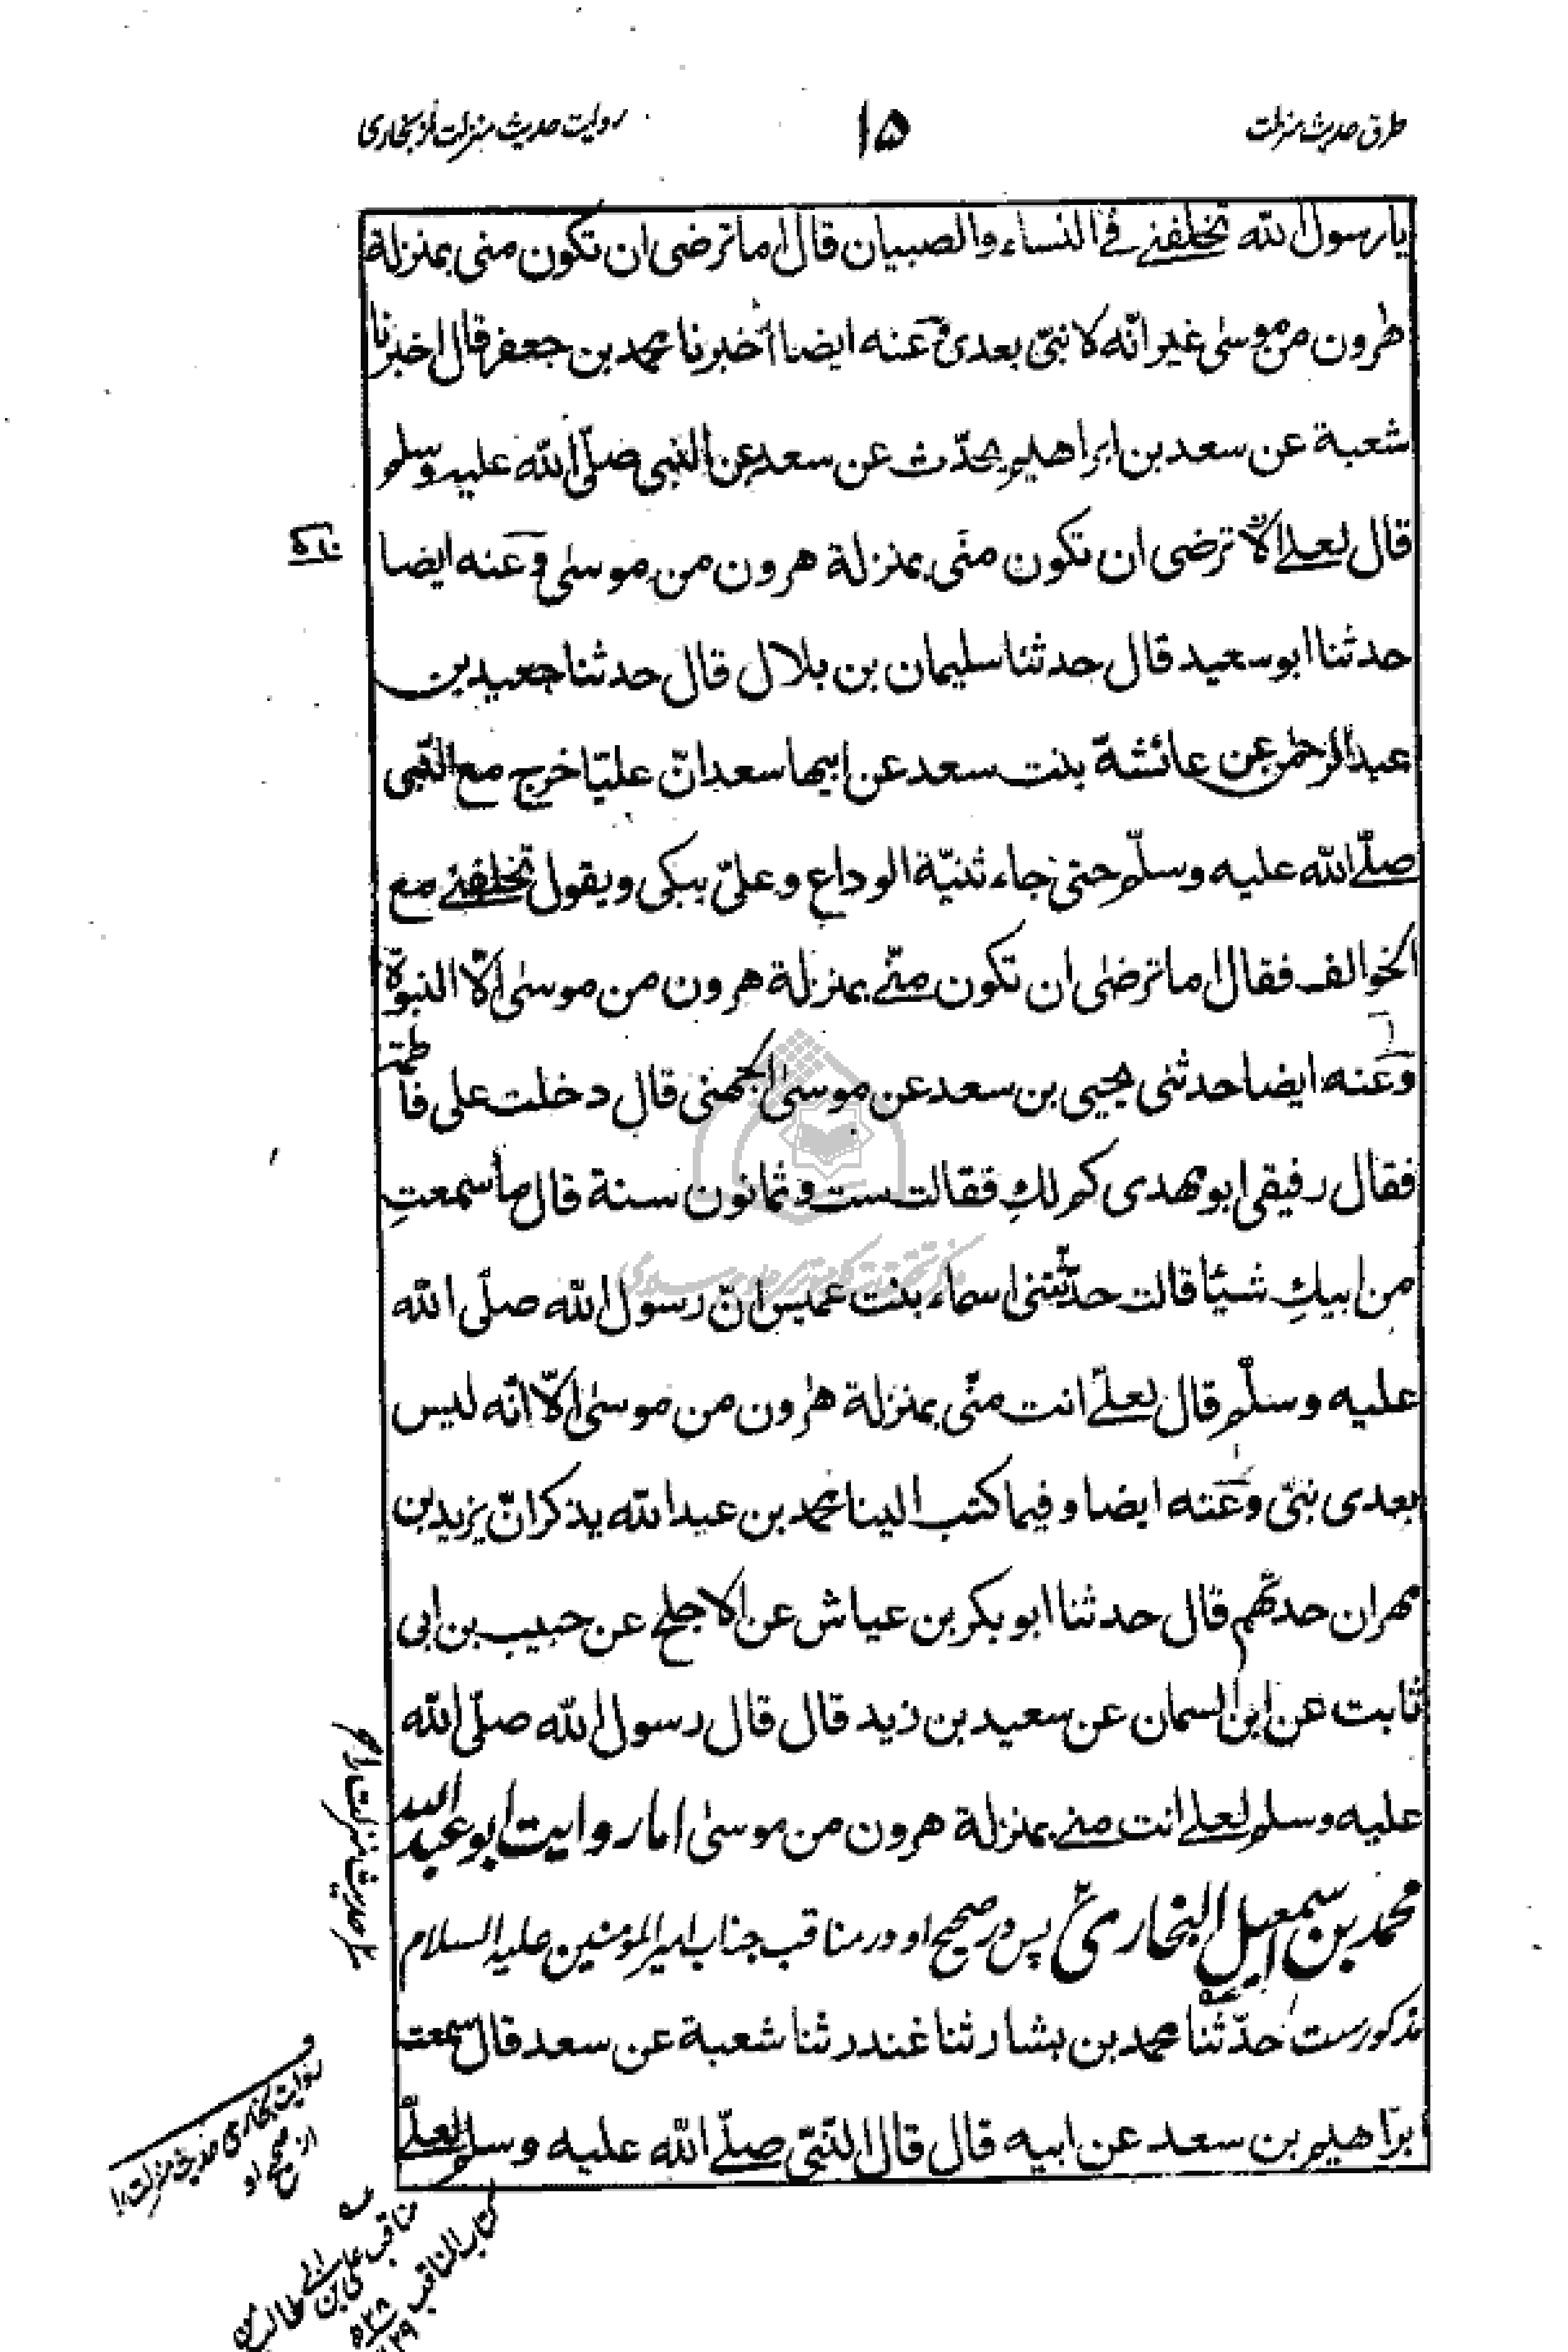 طرق حدیث منزلت
۱۵
روایت حدیث منزلت از بخاری
یا رسول الله تخلفنی فی النساء والصبیان قال اما ترضی ان تکون منی بمنزلة
هرون من موسٰی غیر انّه لا نبیّ بعدی وعنه ایضا اخبرنا محمد بن جعفر قال اخبرنا
شعبة عن سعد بن ابراهیم یحدّث عن سعد عن النبی صلّی الله علیه وسلم
قال لعلی الا ترضی ان تکون منّی بمنزلة هرون من موسٰی وعنه ایضا
حدثنا ابو سعید قال حدثنا سلیمان بن بلال قال حدثنا جعید بن
عبد الرحمٰن عن عائشة بنت سعد عن ابیها سعد انّ علیّا خرج مع النّبی
صلّی الله علیه وسلّم حتی جاء ثنیّة الوداع وعلیّ یبکی ویقول تخلفنی مع
الخوالف فقال اما ترضٰی ان تکون منّی بمنزلة هرون من موسٰی الّا النبوّة
وعنه ایضا حدثنی یحیی بن سعد عن موسٰی الجهنی قال دخلت علی فاطمة
فقال رفیقی ابو مهدی کم لكِ فقالت ست وثمانون سنة قال ما سمعتِ
من ابیكِ شیئا قالت حدّثتنی اسماء بنت عمیس انّ رسول الله صلّی الله
علیه وسلّم قال لعلیّ انت منّی بمنزلة هٰرون من موسٰی الّا انّه لیس
بعدی نبیّ وعنه ایضا وفیما کتب الینا محمد بن عبد الله یذکر انّ یزید بن
مهران حدثهم قال حدثنا ابو بکر بن عیاش عن الاجلح عن حبیب بن ابی
ثابت عن ابن السمان عن سعید بن زید قال قال رسول الله صلّی الله
علیه وسلم لعلی انت منی بمنزلة هرون من موسٰی اما روایت ابو عبد الله
محمد بن سمعیل البخاریؒ پس در صحیح او در مناقب جناب امیر المؤمنین علیه السلام
مذکورست حدّثنا محمد بن بشار ثنا غندر ثنا شعبة عن سعد قال سمعت
براهیم بن سعد عن ابیه قال قال النّبیّ صلّی الله علیه وسلم لعلیّ
روایت بخاری حدیث منزلت را
از صحیح او
مناقب علی بن ابی طالب
کتاب المناقب